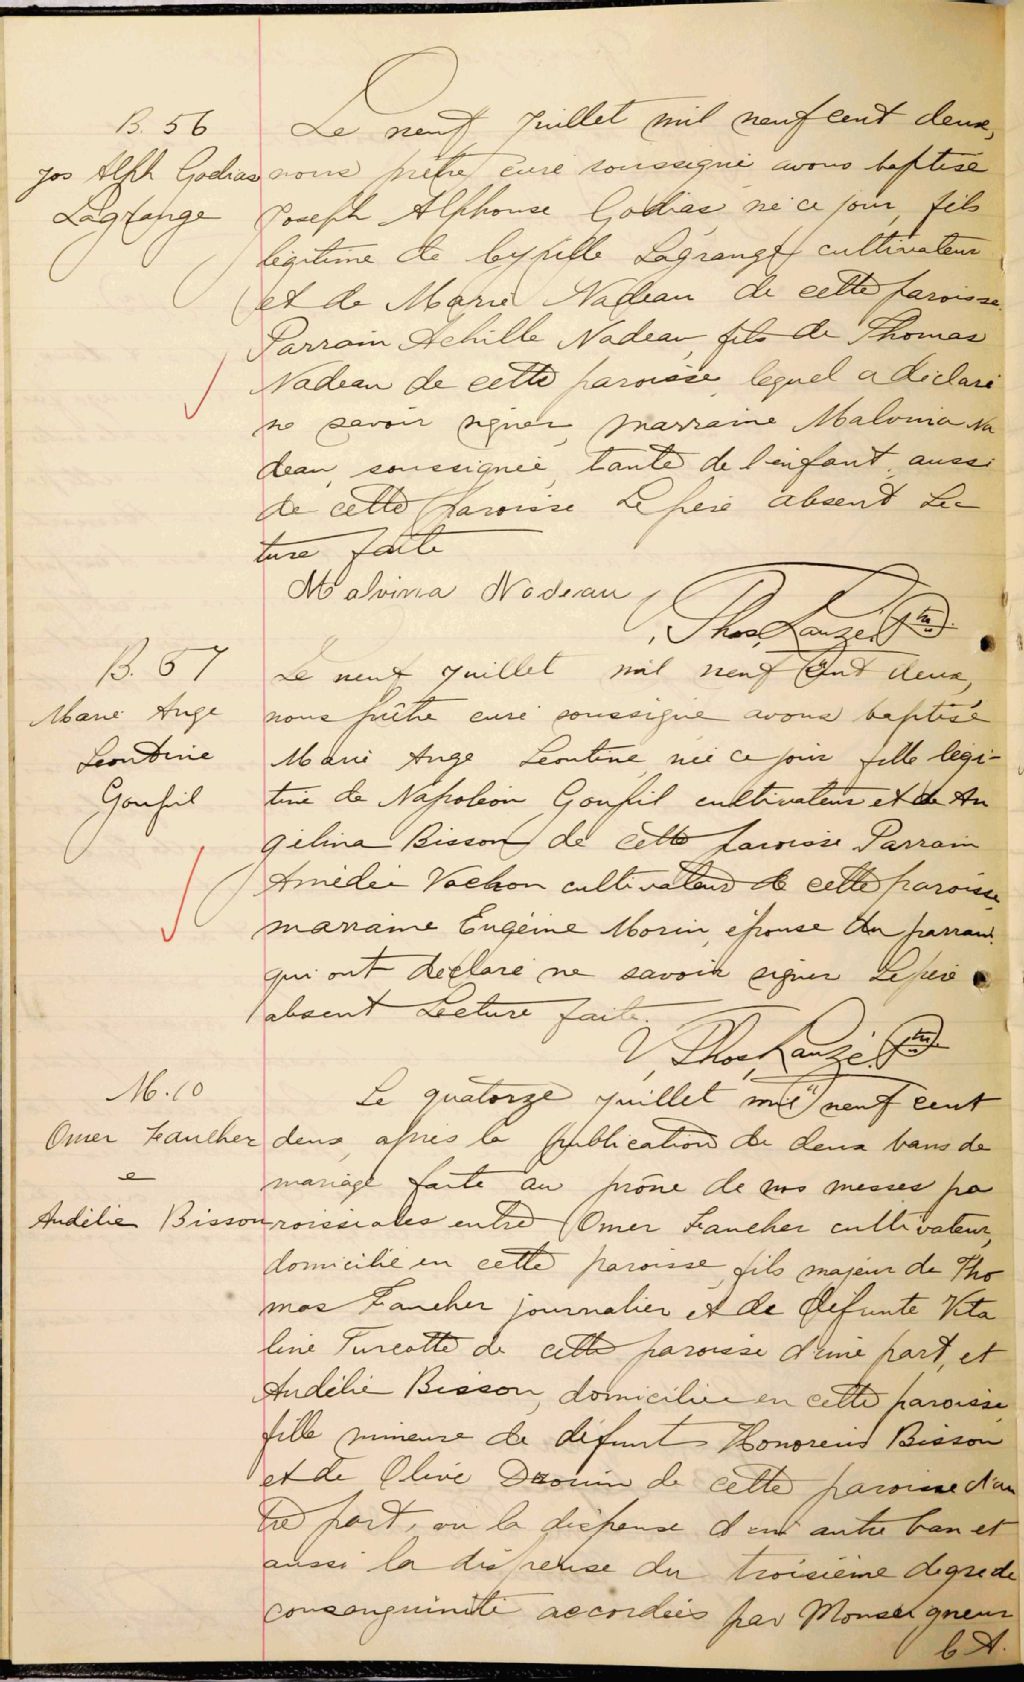 B. 56
Jos Alph Godias
Lagrange
Le neuf Juillet mil neuf cent deux,
nous prêtre curé soussigné avons baptisé
Joseph Alphonse Godias, né ce jour, fils
légitime de Cyrille Lagrange cultivateur
et de Marie Nadeau de cette paroisse.
Parrain Achille Nadeau, fils de Thomas
Nadeau de cette paroisse, lequel a déclaré
ne savoir signer, marraine Malvina Na
deau, soussignée, tante de l'enfant, aussi
de cette paroisse Le père absent Lec
ture faite
Malvina Nadeau
Thos, Lauzé. Ptre
B. 57
Marie Ange
Leontine
Goupil
Le neuf Juillet mil neuf cent deux,
nous prêtre curé soussigné avons baptisé
Marie Ange Leontine, née ce jour fille légi-
time de Napoléon Goupil cultivateur et de An
gelina Bisson de cette paroisse Parrain
Amédée Vachon cultivateur de cette paroisse,
marraine Eugénie Morin, épouse du parrain.
qui ont déclaré ne savoir signer Le père
absent Lecture faite.
Thos, Lauzé. Ptre
M. 10
Omer Faucher
e
Audélie Bisson
Le quatorze Juillet mil neuf cent
deux, après la publication de deux bans de
mariage faite au prône de nos messes pa
roissiales entre Omer Faucher cultivateur,
domicilié en cette paroisse, fils majeur de Tho
mas Faucher journalier et de défunte Vita
line Turcotte de cette paroisse d'une part, et
Audélie Bisson, domiciliée en cette paroisse,
fille mineure de défunt Honoreus Bisson
et de Olive Drouin de cette paroisse d'au
tre part, vu la dispense d'un autre ban et
aussi la dispense du troisième degré de
consanguinité accordées par Monseigneur
C A.